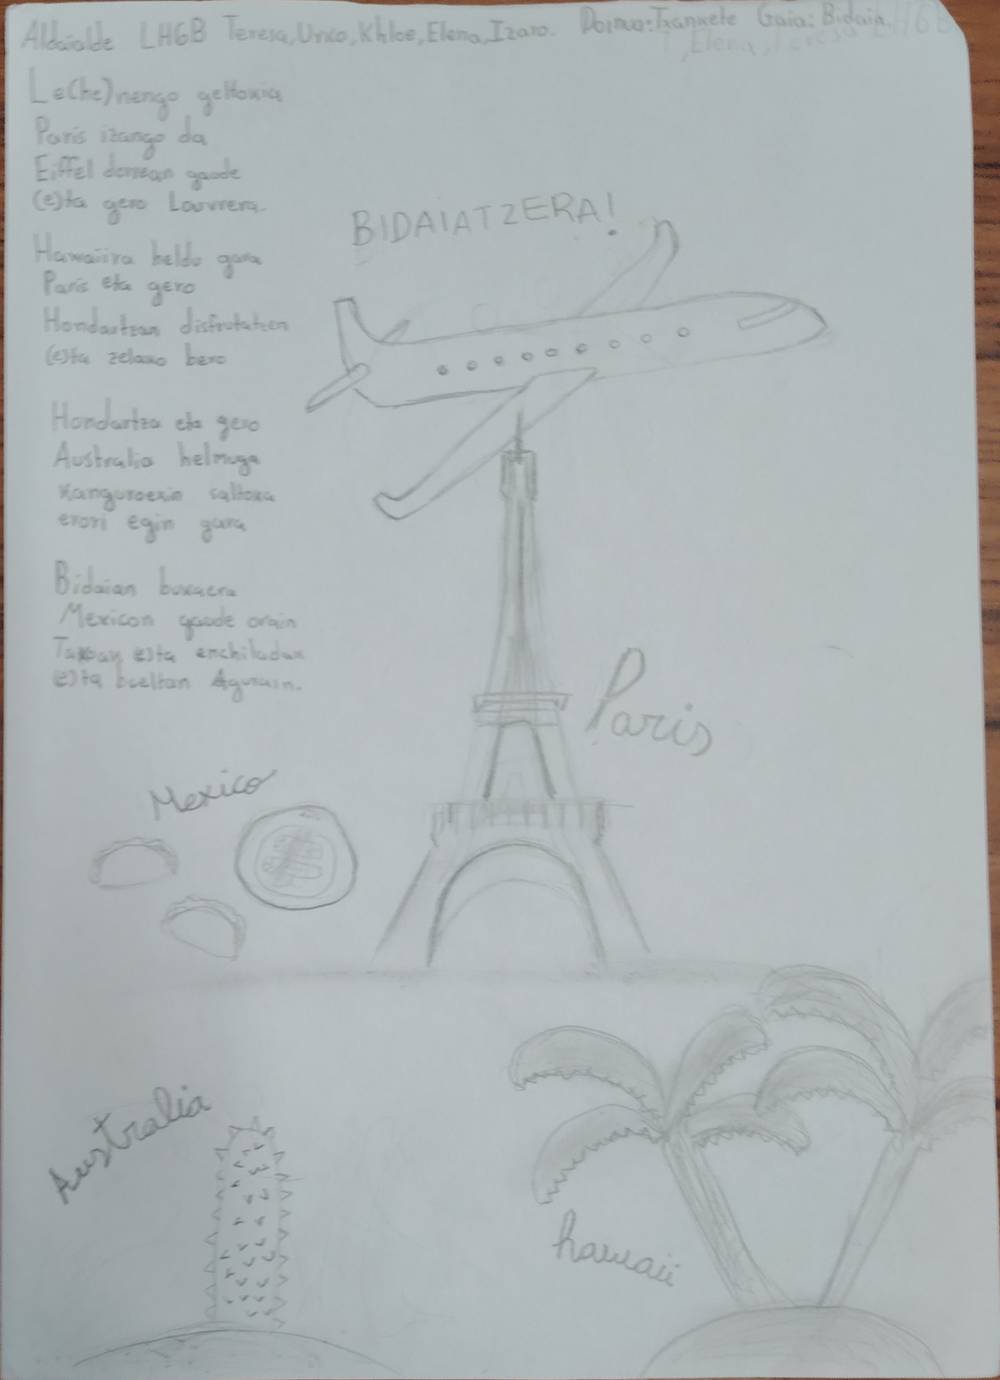 Aldaialde LH6B Teresa, Unco, Khloe, Elena, Izaro. Doinua: Txanpete Gaia: Bidaia
Le(he)nengo geltokia
Paris izango da
Eiffel dorrean gaude
(e)ta gero Louvrera.
Hawaiira heldu gara
Paris eta gero
Hondartzan disfrutatzen
(e)ta zelako bero
Hondartza eta gero
Australia helmuga
Kanguroekin saltoka
erori egin gara
Bidaian bukaera
Mexicon gaude orain
Takoak (e)ta enchiladak
(e)ta bueltan Agurain.
BIDAIATZERA!
Paris
Mexico
Australia
hawaii